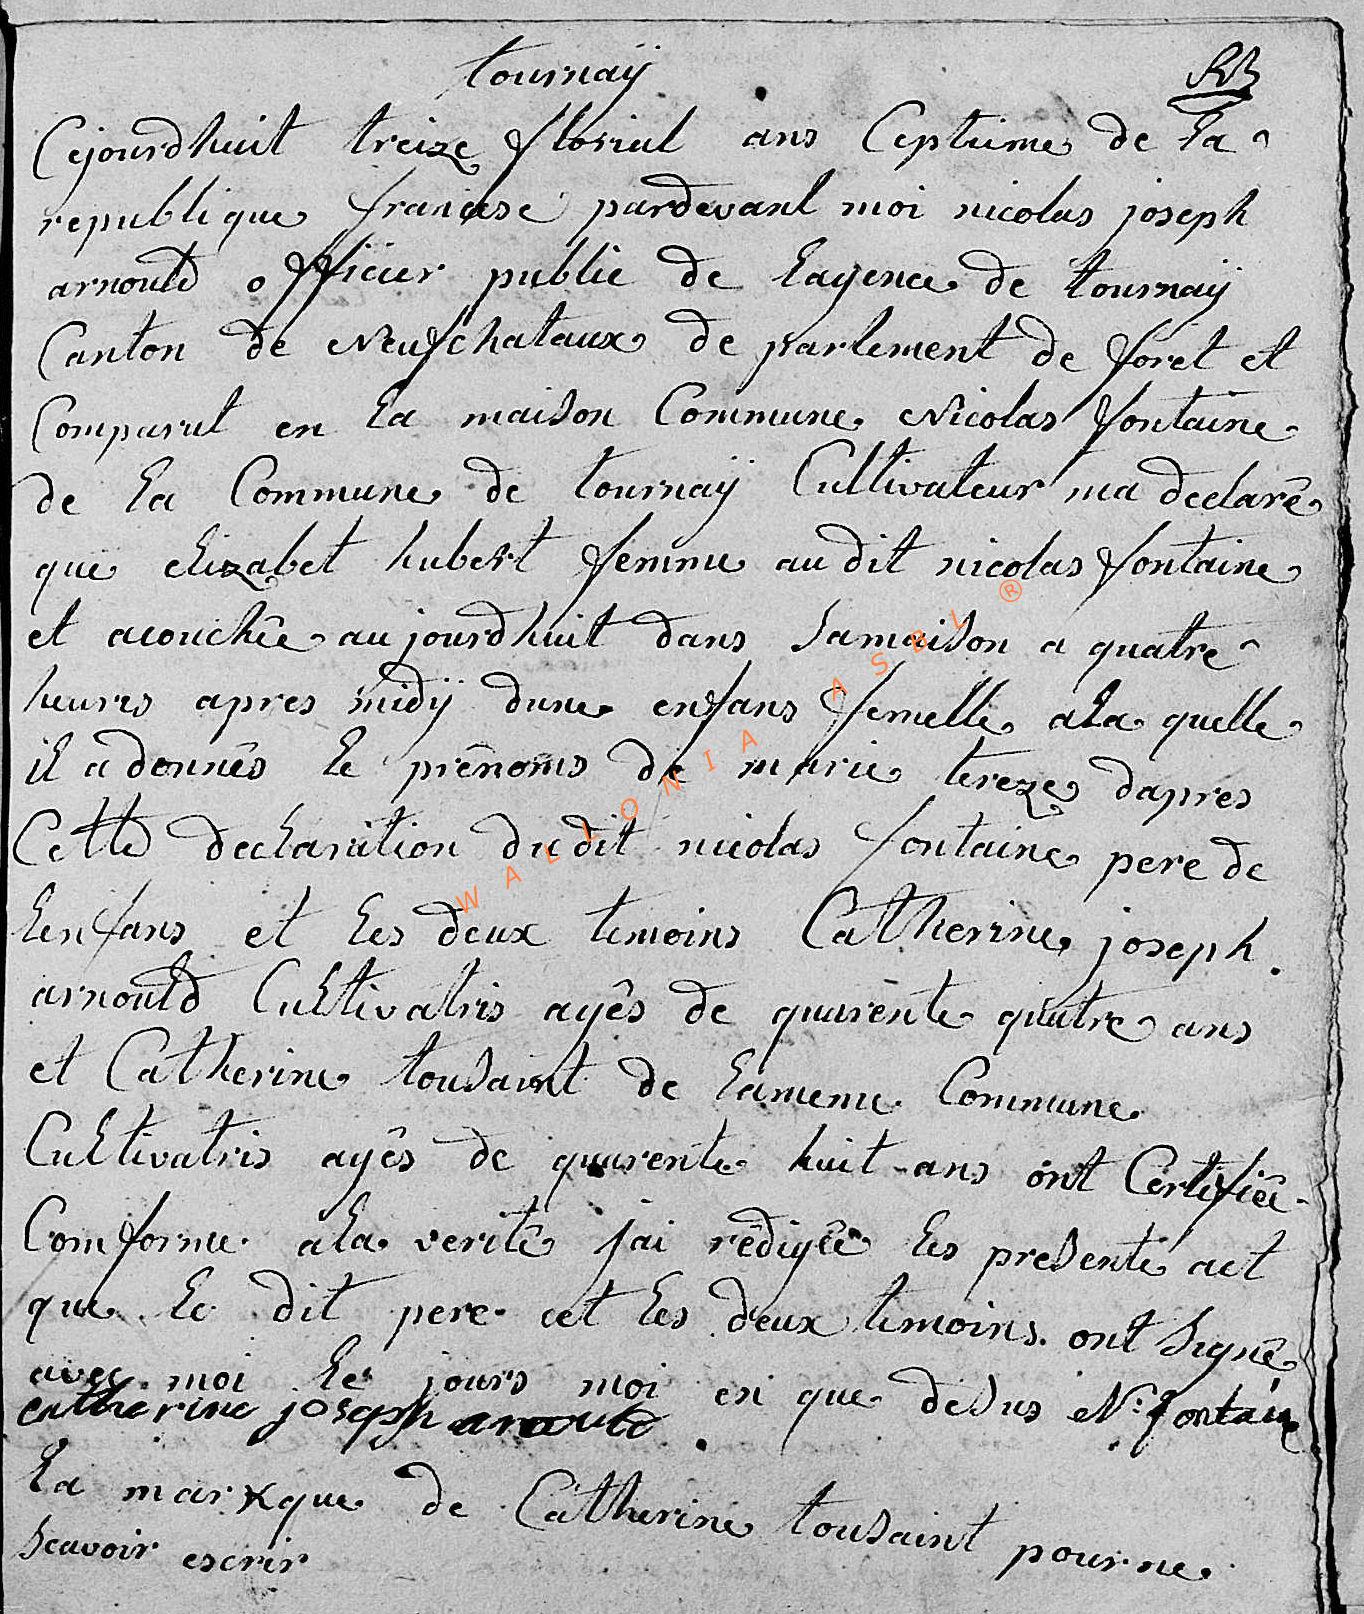 tournaÿ
Cejourdhuit treize florial ans Ceptieme de la
republique francese pardevant moi nicolas joseph
arnould officier public de lagence de tournaÿ
Canton de Neufchataux de parlement de foret et
Comparut en la maison Commune Nicolas fontaine
de la Commune de tournaÿ Cultivateur ma declarê
que elizabet hubert femme au dit nicolas fontaine
et acouchêe aujourdhuit dans samaison a quatre
heures apres midÿ dune enfans femelle ala quelle
il a donnês le prênoms de marie tereze dapres
Cette declaration dudit nicolas fontaine pere de
lenfans et les deux temoins Catherine joseph
arnould Cultivatris agês de quarente quatre ans
et Catherine tousaint de lameme Commune
Cultivatris agês de quarente huit ans ont Certifiêe
Comforme ala veritê jai rêdigêe les presente act
que le dit pere et les deux temoins ont signê
avec moi le jours moi en que desus N: fontaine
catherine joseph arnould
la marxque de Catherine tousaint pour ne
scavoir escrir
WALLONIA ASBL ®